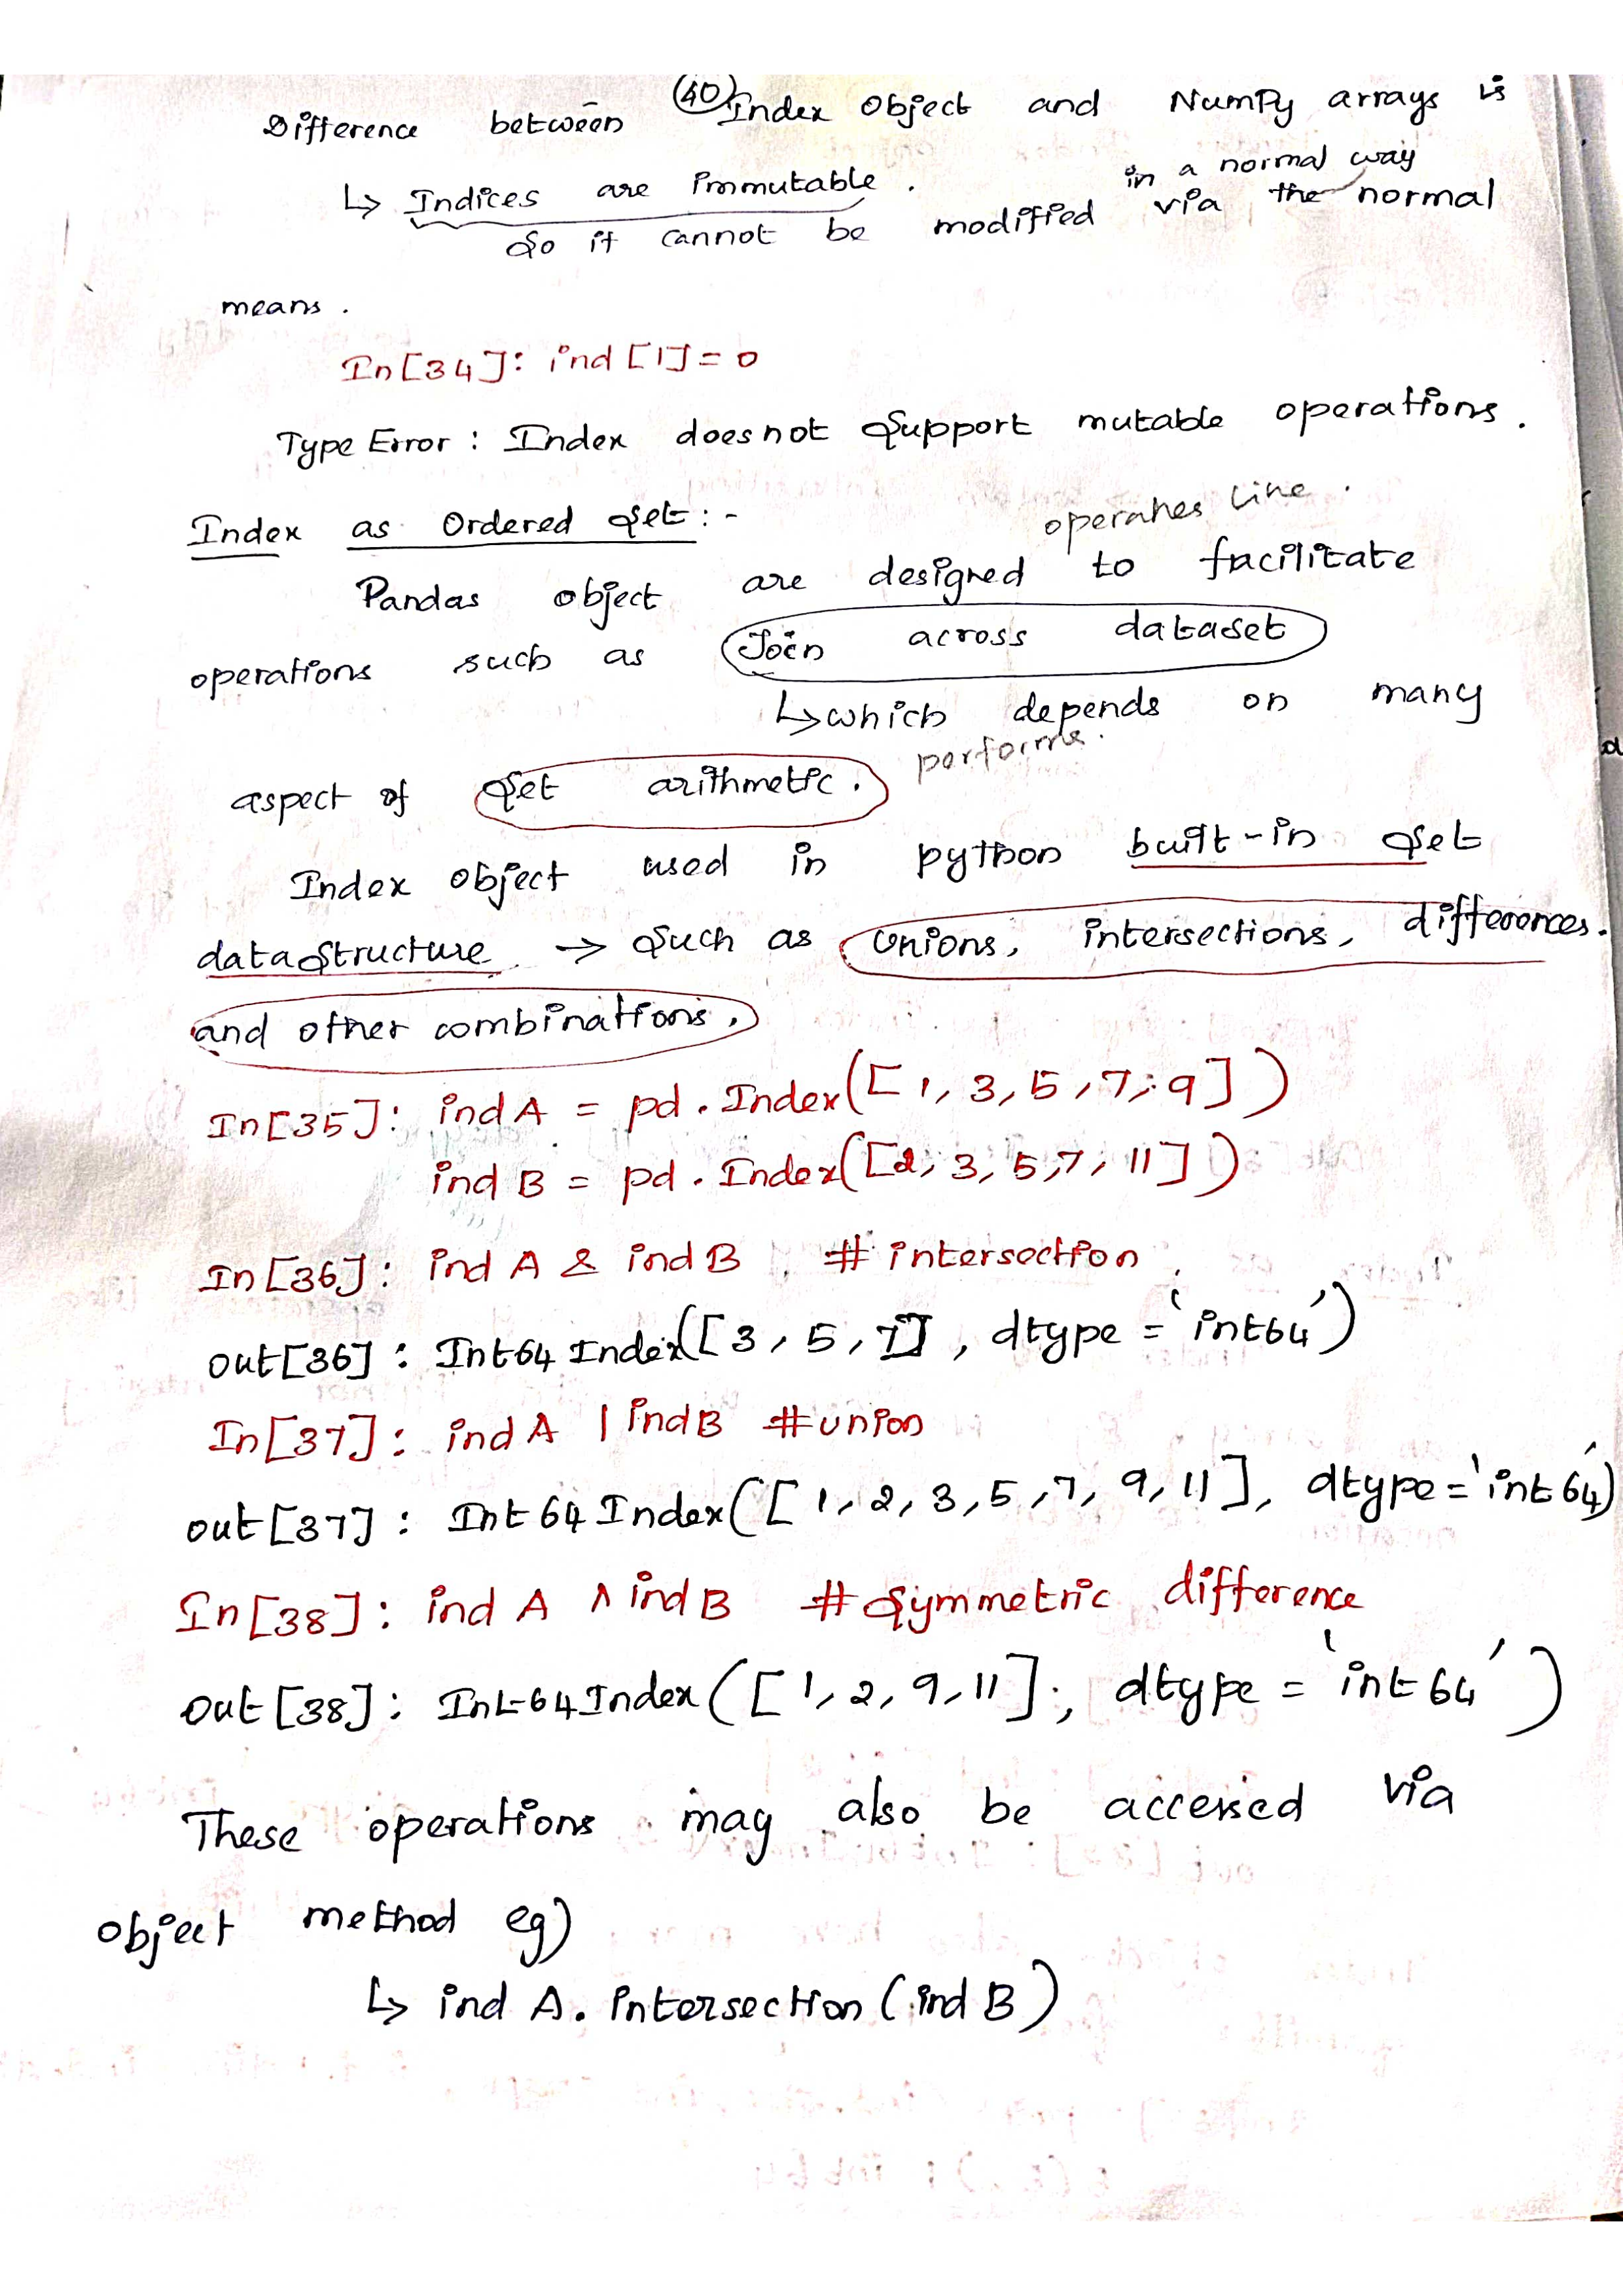 (40)
Difference between Index Object and NumPy arrays is
↳ Indices are immutable.
in a normal way
So it cannot be modified via the normal
means.
In[34]: ind[1]=0
Type Error: Index does not Support mutable operations.
Index as Ordered Set:-
operates like.
Pandas object are designed to facilitate
operations such as Join across dataset
↳ which depends on many
aspect of Set arithmetic. performs.
Index object used in python built-in Set
data Structure → Such as Unions, intersections, differences.
and other combinations.
In[35]: ind A = pd.Index([1, 3, 5, 7, 9])
ind B = pd.Index([2, 3, 5, 7, 11])
In[36]: ind A & ind B # intersection
out[36]: Int64 Index([3, 5, 7], dtype='int64')
In[37]: ind A | ind B #union
out[37]: Int64 Index([1, 2, 3, 5, 7, 9, 11], dtype='int64')
In[38]: ind A ^ ind B # Symmetric difference
out[38]: Int64Index([1, 2, 9, 11], dtype='int64')
These operations may also be accessed via
object method eg)
↳ ind A. intersection (ind B)